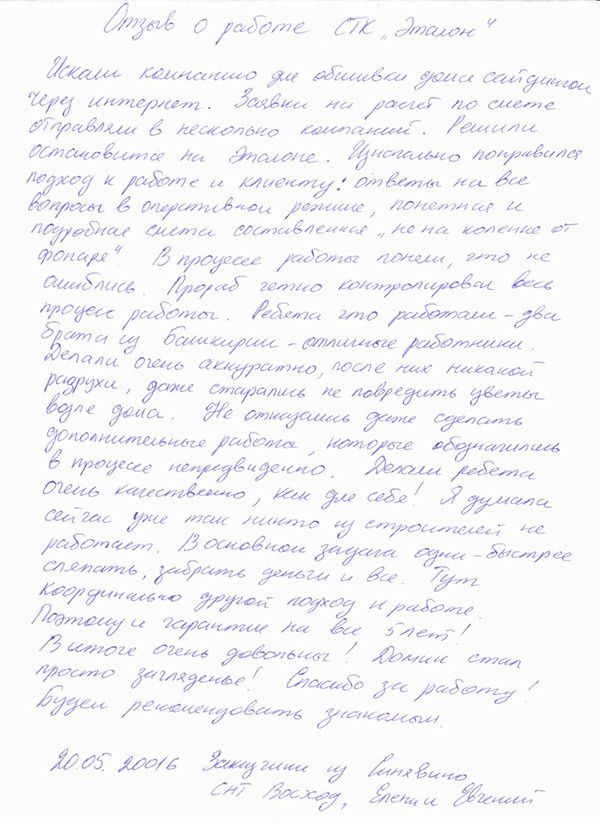 Отзыв о работе СТК „Эталон“
Искали компанию для обшивки дома сайдингом
через интернет. Заявки на расчет по смете
отправляли в несколько компаний. Решили
остановится на Эталоне. Изначально понравился
подход к работе и клиенту: ответы на все
вопросы в оперативном режиме, понятная и
подробная смета составленная „не на коленке от
фонаря“. В процессе работы поняли, что не
ошиблись. Прораб четко контролировал весь
процесс работы. Ребята что работали – два
брата из Башкирии – отличные работники.
Делали очень аккуратно, после них никакой
разрухи, даже старались не повредить цветы
возле дома. Не отказались даже сделать
дополнительные работы, которые обозначились
в процессе непредвиденно. Делали ребята
очень качественно, как для себя! Я думала
сейчас уже так никто из строителей не
работает. В основном задача одна – быстрее
сляпать, забрать деньги и все. Тут
координально другой подход к работе.
Поэтому и гарантия на все 5 лет!
В итоге очень довольны! Домик стал
просто загляденье! Спасибо за работу!
Будем рекомендовать знакомым.
20.05.20016 Заказчики из Синявино
СНТ Восход, Елена и Евгений